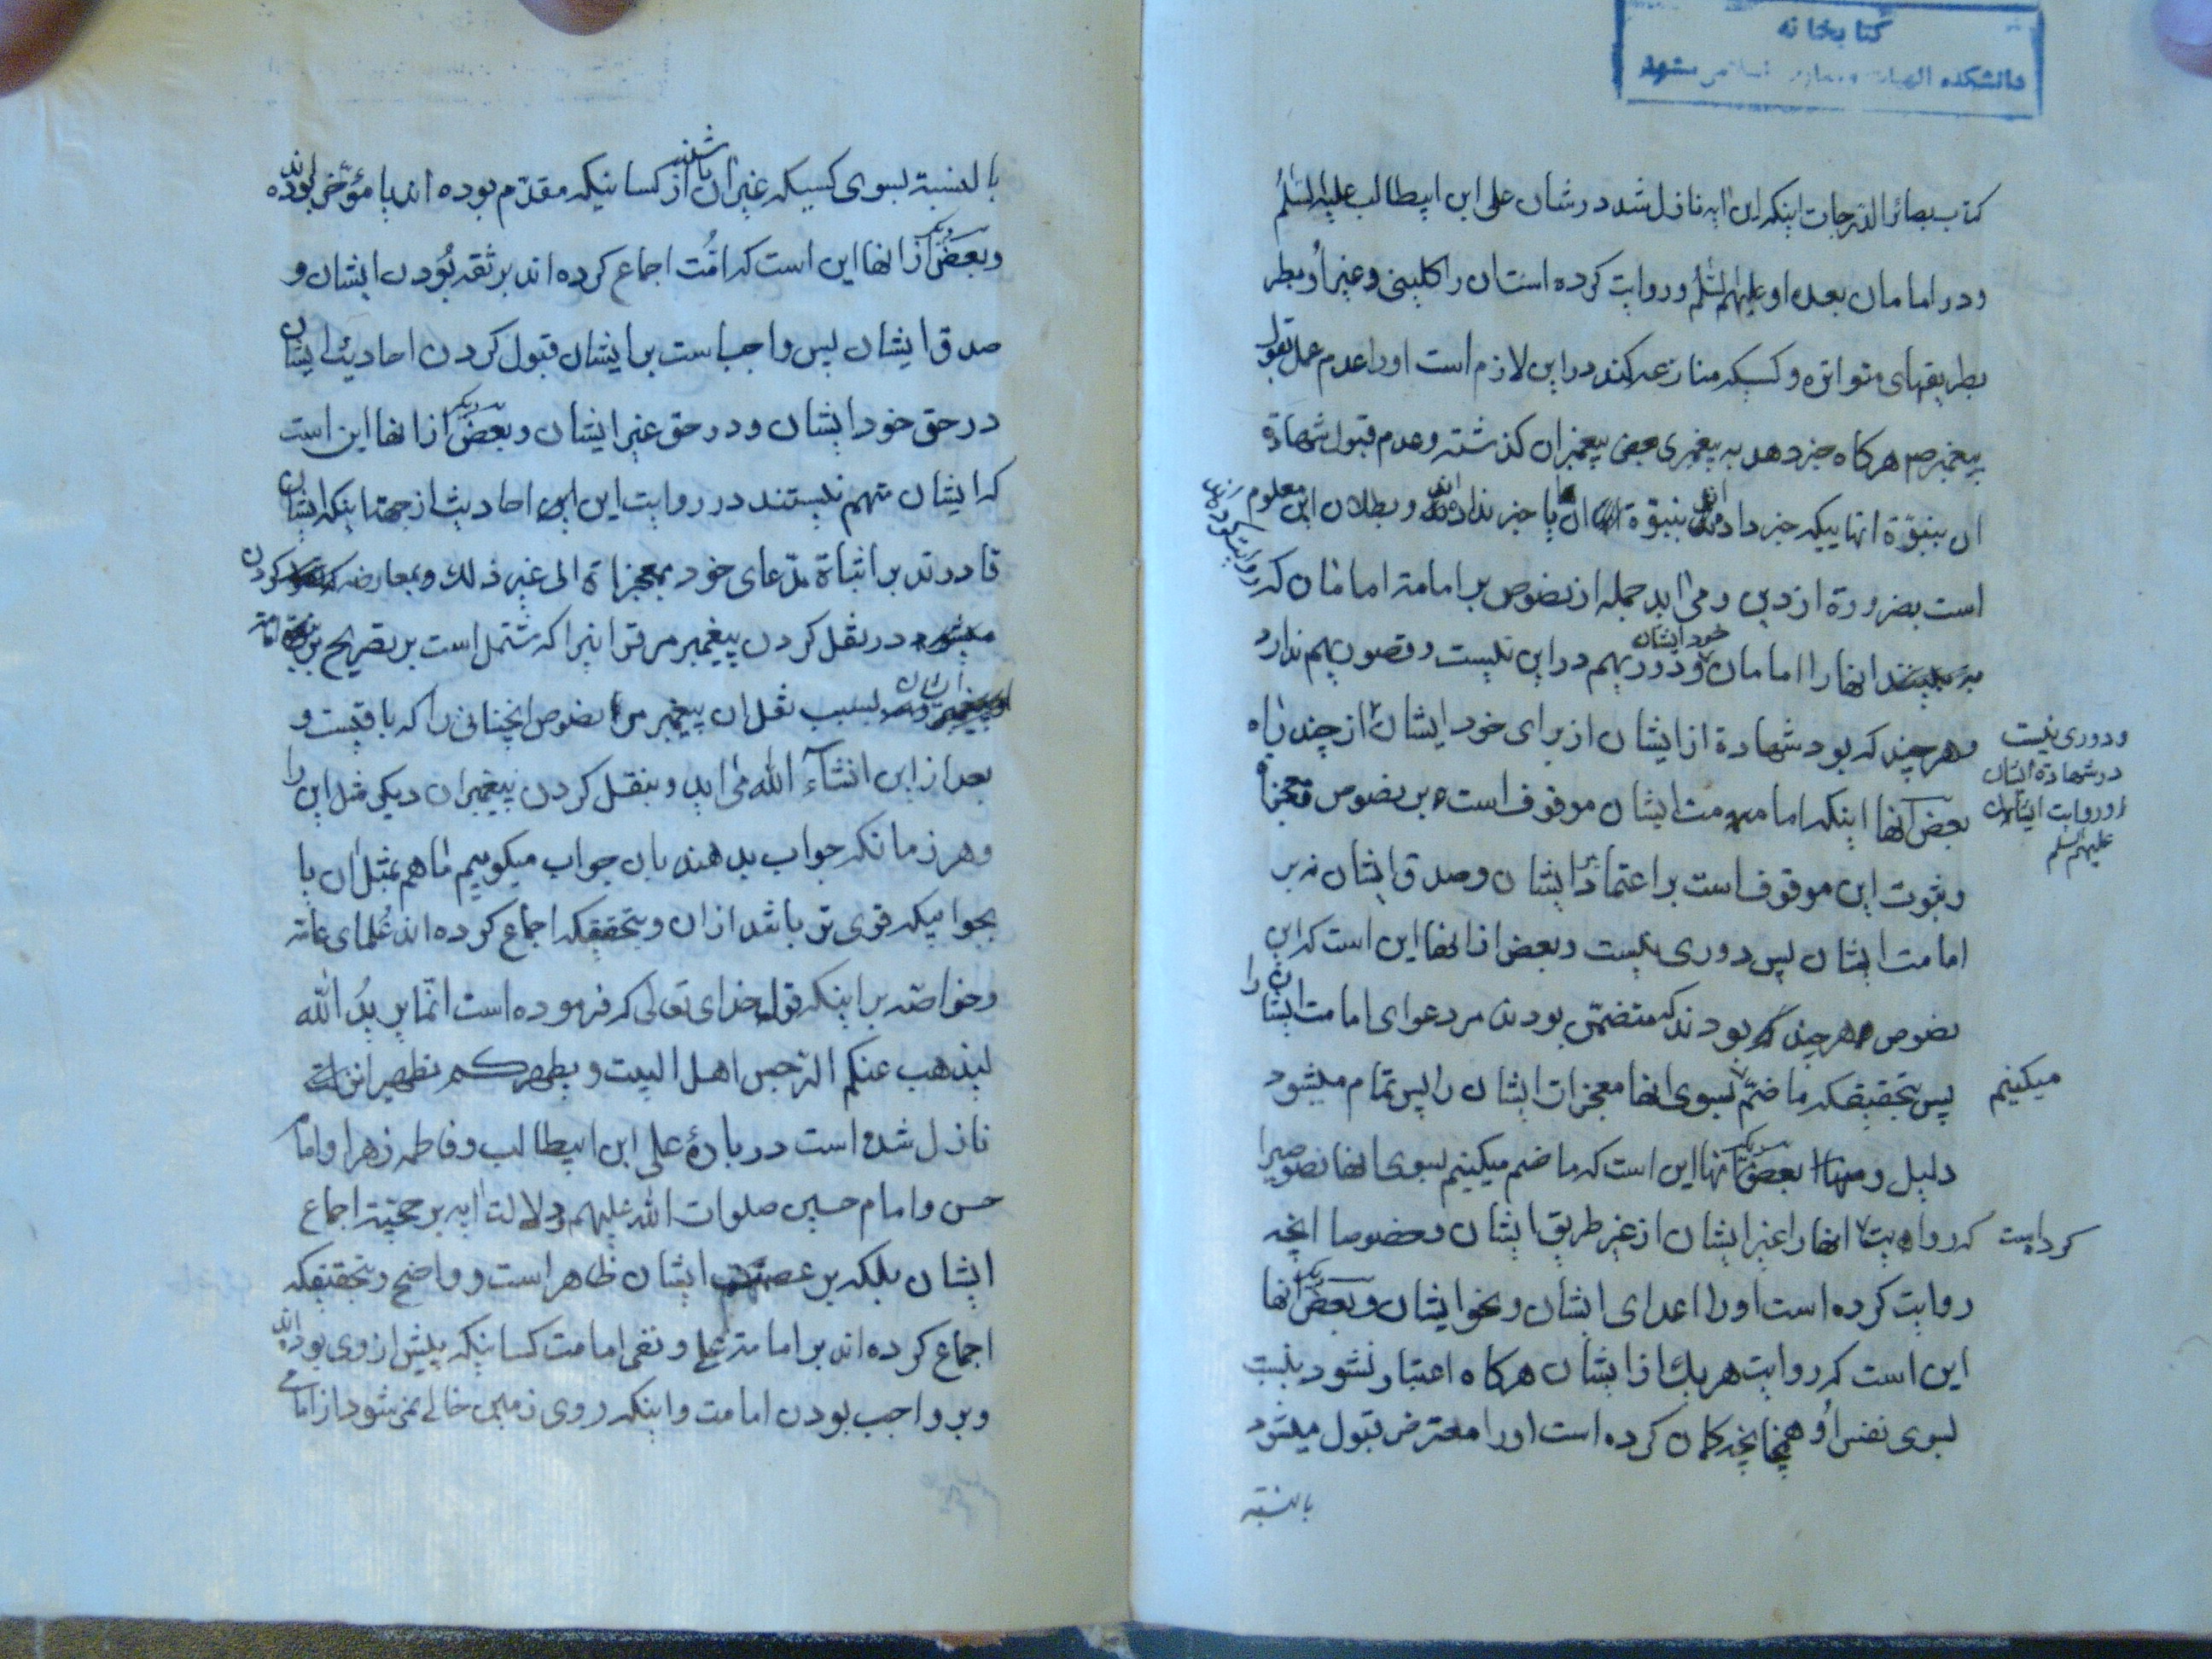 کتابخانه
دانشکده الهیات و معارف اسلامی مشهد
کتاب بصائر الدرجات اینکه این ایه نازل شد در شان علی ابن ابیطالب علیه السلم
و در امامان بعد او علیهم السلم و روایت کرده است ان را کلینی و غیر او بطر
بطریقهای متواتره و کسیکه منازعه کند در این لازم است او را عدم عمل بقول
پیغمبر ص هرکاه خبر دهد به پیغمبری بعض پیغمبران کذشته و عدم قبول شهادة
ان بنبوّة انهاییکه خبر داده اند بنبوّة ان یا خبر نداده اند و بطلان این معلوم
است بضرورة از دین و می اید جمله از نصوص بر امامة امامان که روایت کرده اند
انها را امامان خود ایشان و دور بهم در این نیست و قصون بهم ندارد
و هر چند که بود شهادة از ایشان از برای خود ایشان از چند راه
ودوری نیست
در شهادة ایشان
و روایت ایشان
علیهم السلم
بعض انها اینکه امامت ایشان موقوف است بر نصوص و معجزاة
و ثبوت این موقوف است بر اعتماد بر ایشان و صدق ایشان نه بر
امامت ایشان پس دوری نیست و بعض از انها این است که این
نصوص هر چند بودند که متضمّن بودند مر دعوای امامت ایشان را
پس بتحقیقکه ما ضمّ میکنیم بسوی انها معجزات ایشان را پس تمام میشود
دلیل و بعض دیکر انها این است که ما ضم میکنیم بسوی انها نصوصیرا
که روایت کرد است انها را غیر ایشان از غیر طریق ایشان و خصوصا انچه
روایت کرده است او را اعدای ایشان و نحو ایشان و بعض دیکر انها
این است که روایت هر یک از ایشان هرکاه اعتبار نشود بنسبت
بسوی نفس او همچنانچه کمان کرده است او را معترض قبول میشود
بالنسبة
بالنسبة بسوی کسیکه غیر ان باشند از کسانیکه مقدّم بوده اند یا مؤخّر بوده اند
و بعض دیکر از انها این است که امّت اجماع کرده اند بر ثقه بودن ایشان و
صدق ایشان پس واجب است بر ایشان قبول کردن احادیث ایشان
در حق خود ایشان و در حق غیر ایشان و بعض دیکر از انها این است
که ایشان متهم نیستند در روایت این احادیث از جهة اینکه ایشان
قادرند بر اثباة مدّعای خود بمعجزاة الی غیر ذلك و بمعارضه کردن
در نقل کردن پیغمبر مر قرانیرا که مشتمل است بر تصریح بر امامة
ایشان بسبب نقل ان پیغمبر مر نصوص انچنانی را که باقیست و
بعد از این انشآء الله می اید و بنقل کردن پیغمبران دیکر مثل این را
و هر زمانکه جواب بدهند بان جواب میکوییم ما هم بمثل ان یا
بجوابیکه قوی تر باشد از ان و بتحقیقکه اجماع کرده اند علمای عامّه
و خواصّه بر اینکه قول خدای تعالی که فرموده است انّما یرید الله
لیذهب عنکم الرّجس اهل البیت و یطهرکم تطهیرا
نازل شده است در بارهٔ علی ابن ابیطالب و فاطمه زهرا و امام
حسن و امام حسین صلوات الله علیهم و دلالت ایه بر حجیّة اجماع
ایشان بلکه بر عصمت ایشان ظاهر است و واضح و بتحقیقکه
اجماع کرده اند بر امامة علی و نفی امامت کسانیکه پیش از وی بوده اند
و بر واجب بودن امامت و اینکه روی زمین خالی نمی شود از امامی